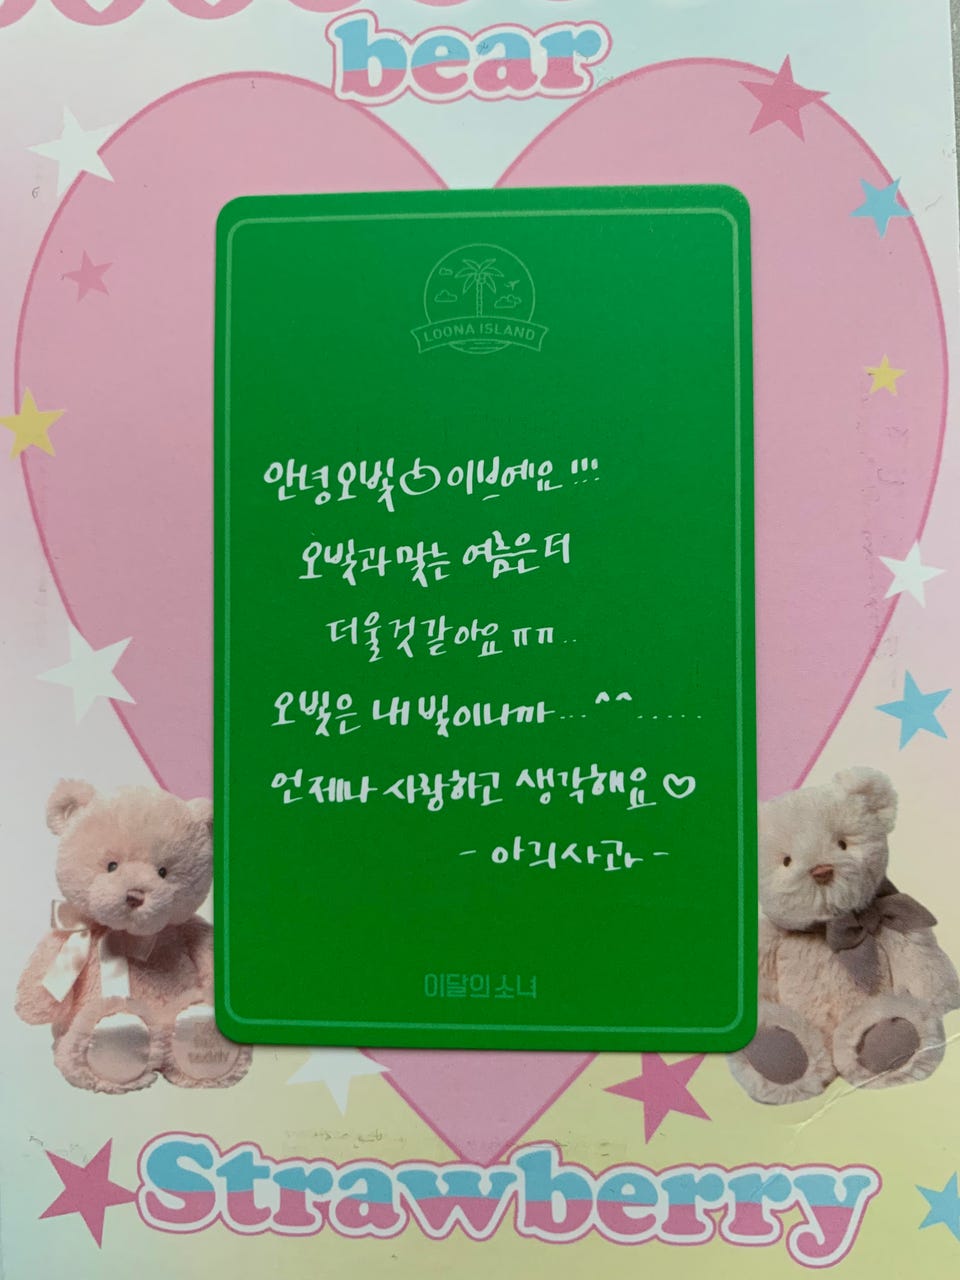 bear
LOONA ISLAND
안녕 오빛 이브에요!!!
오빛과 맞는 여름은 더
더울것 같아요 ㅠㅠ..
오빛은 내 빛이니까...^^.....
언제나 사랑하고 생각해요♡
- 아기사과 -
이달의 소녀
teddy
Strawberry